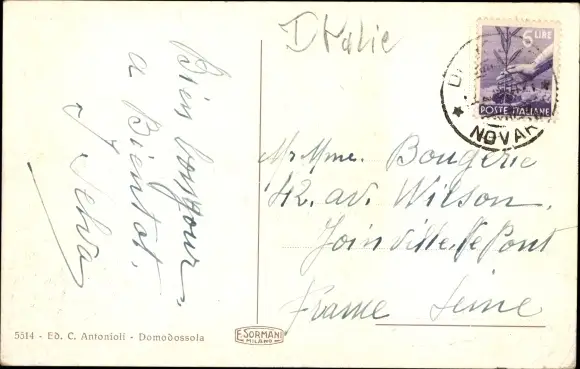 Italie
6 LIRE
POSTE ITALIANE
NOVAR
Bien bonjour,
a Bientot.
J Selva
Mr Mme. Bougerie
42. av. Wilson.
Joinville. le Pont
France Seine
5514 - ED. C. Antonioli - Domodossola
E. SORMANI
MILANO